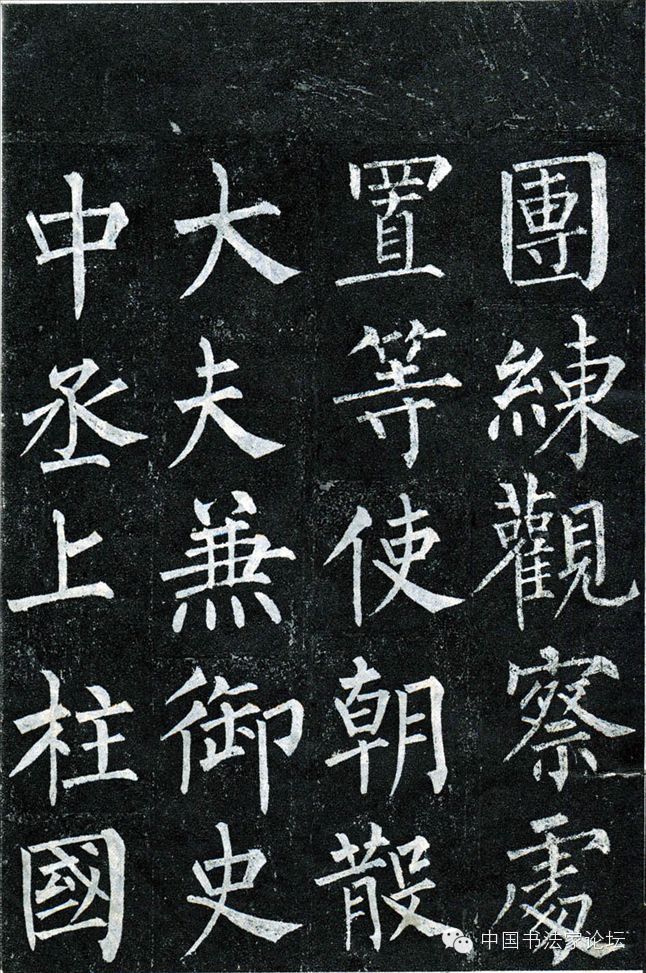 團練觀察處
置等使朝散
大夫兼御史
中丞上柱國
中国书法家论坛